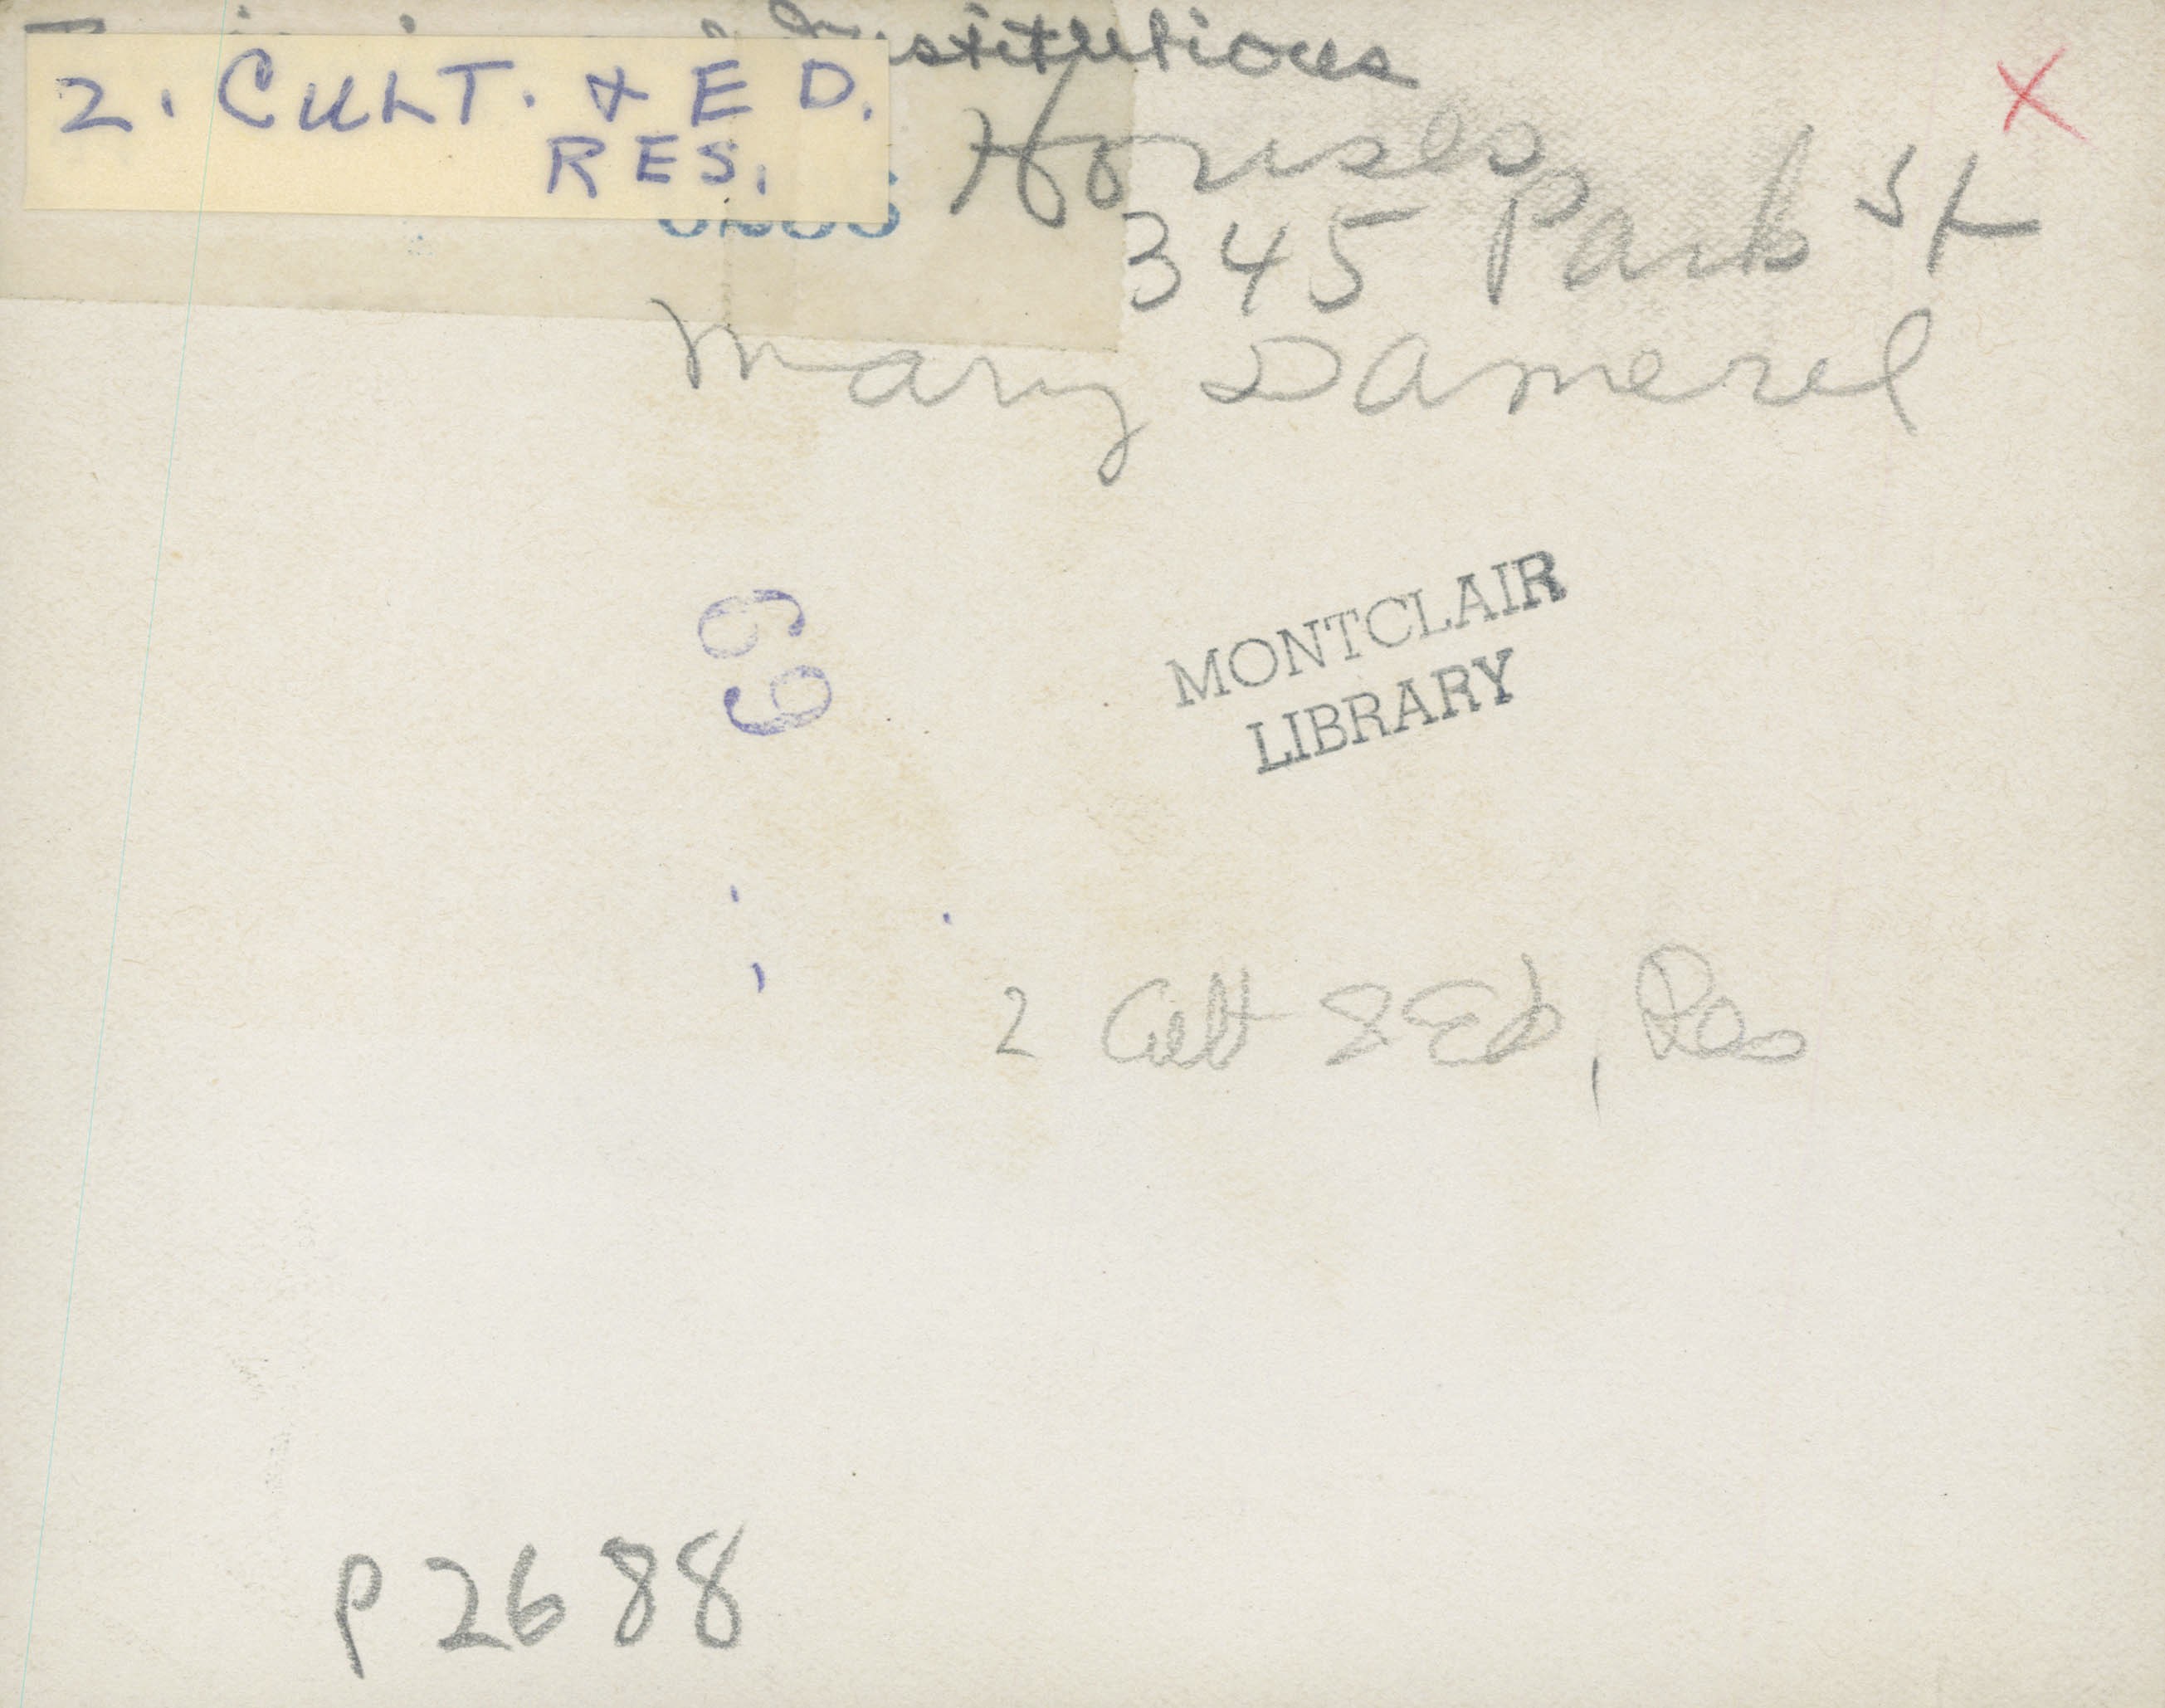 Institutions
2. CULT. & ED.
RES.
Houses
345 Park St
Mary Damerel
69
MONTCLAIR
LIBRARY
2 Cult & Ed, Res
P2688